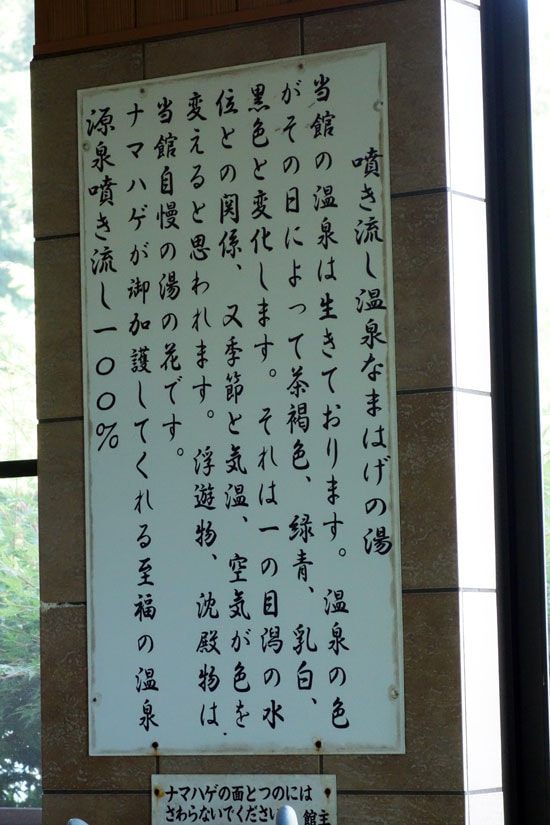 噴き流し温泉なまはげの湯
当館の温泉は生きております。温泉の色
がその日によって茶褐色、緑青、乳白、
黒色と変化します。それは一の目潟の水
位との関係、又季節と気温、空気が色を
変えると思われます。浮遊物、沈殿物は、
当館自慢の湯の花です。
ナマハゲが御加護してくれる至福の温泉
源泉噴き流し一〇〇%
ナマハゲの面とつのには
さわらないでください
館主